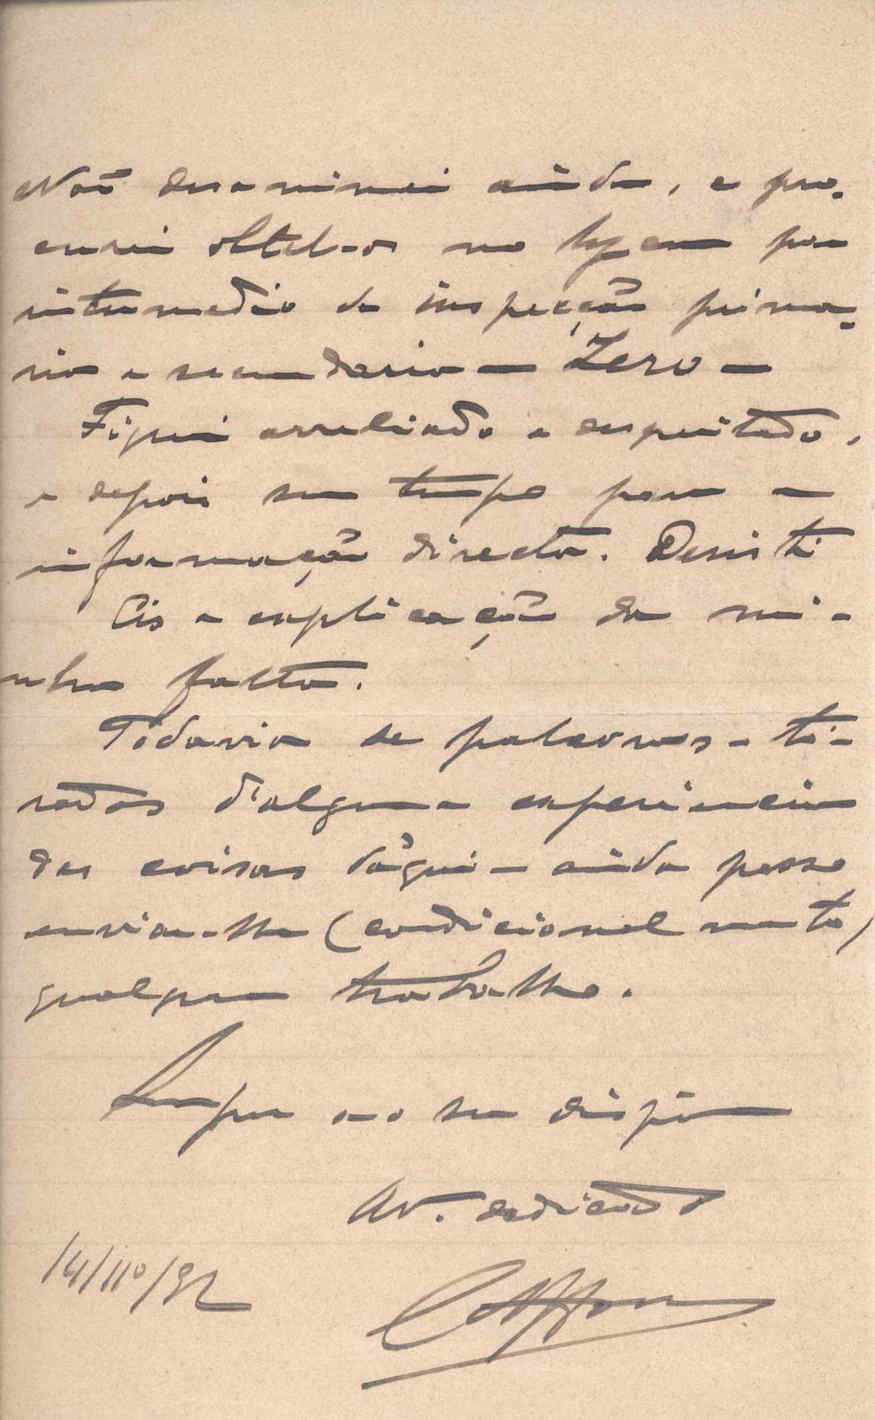 Não desanimei ainda, e pro-
curei obtel-os no por
intermedio da inspecção prima-
ria e secundaria — Zero —
Fiquei arreliado e despeitado,
e depois sem tempo para a
informação directa. Desisti
Eis a explicação da mi-
nha falta.
Todavia se palavras - ti-
radas d'alguma experiencia
das coisas d'aqui - ainda posso
enviar-lhe (condicionalmente)
qualquer trabalho.
Sempre ao seu dispôr
dedicado
14/110/92